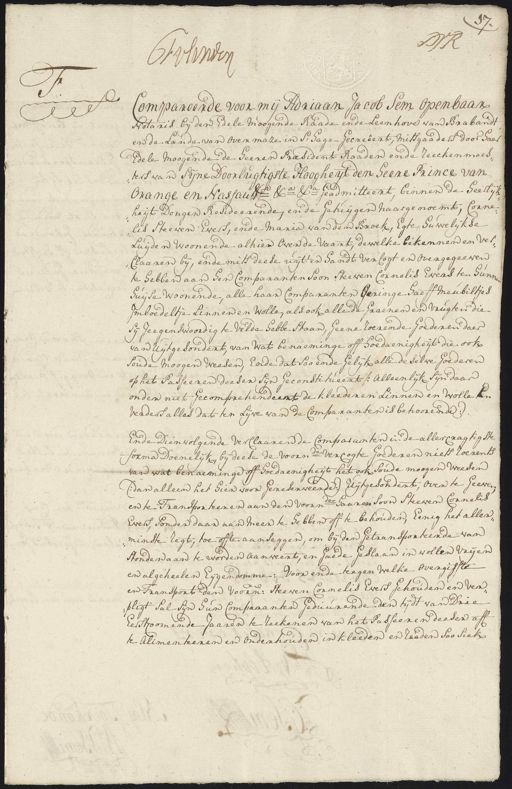 37.
F
Compareerde voor mij Adriaan Jacob Sem openbaar
Notaris bij den Edele Moogende Raade ende Leenhove van Brabandt
en de Lande van Overmaze in 's Hage gecreëert, mitsgaders door haar
Edele Moogende de Heeren President Raaden ende
ters van Sijne Doorlugtigste Hoogheijt den Heere Prince van
Orange en Nassau &a &a &a geadmitteert, binnen de Heerlijk
heijt Dongen Resideerende, ende getuijgen naargenoemt, Corne-
lis Steeven Evers, ende Maria van den Broek, Egte Huwelijkse
Luijden woonende alhier Over de Vaart, dewelke bekennen en ver-
claaren bij, ende mitt deese uijt'er handt verkogt en overgegeeven
te hebben aan hun Comparanten Soon Steeven Cornelis Evers ten hunnen
Huijse woonende, alle haar Comparanten Geringe haeff Meubiltjes
Imboeltje Linnen en Wolle, als ook alle de Graenen en Vrugten die
sij jeegenwoordig te Velde hebben staan, geene roerende goederen daer
van uijtgesondert, van wat benaeminge off hoedaenigheijt die ook
soude moogen weesen, Ende dat soo ende gelijk alle de selve goederen
op het passeeren deeser sijn geconstitueert; Alleenlijk sijn daer
onder niet gecomprehendeert de kleederen Linnen en Wolle en
verders alles dat ten Lijve van de Comparanten is behoorende
Ende dienvolgende verclaaren de Comparanten in de allercragtigste
forma doenelijk, bij deese de voorn: vercogte goederen niets roerents
van wat benaeminge off hoedaenigheijt het ook soude moogen weesen
(dan alleen het hier voor gereserveerde) uijtgesondert, over te geeven,
en te transporteeren aan den voorn: haaren Soon Steeven Cornelis
Evers, sonder daar aan meer te hebben off te behouden, eenig het aller-
minste regt, toe offte aenseggen, om bij den getransporteerde van
stonden aan te worden aanveert, en
en algeheelen Eijgendomme: Voor ende teegen welke overgiffte
en Transport den voorn: Steeven Cornelis Evers gehouden en ver-
pligt sal sijn hun Comparanten geduurende den tijdt van drie
Eerstkoomende Jaaren te reekenen van het passeeren deeser aff
te Alimenteeren en onderhouden in kleeden en reeden soo siek